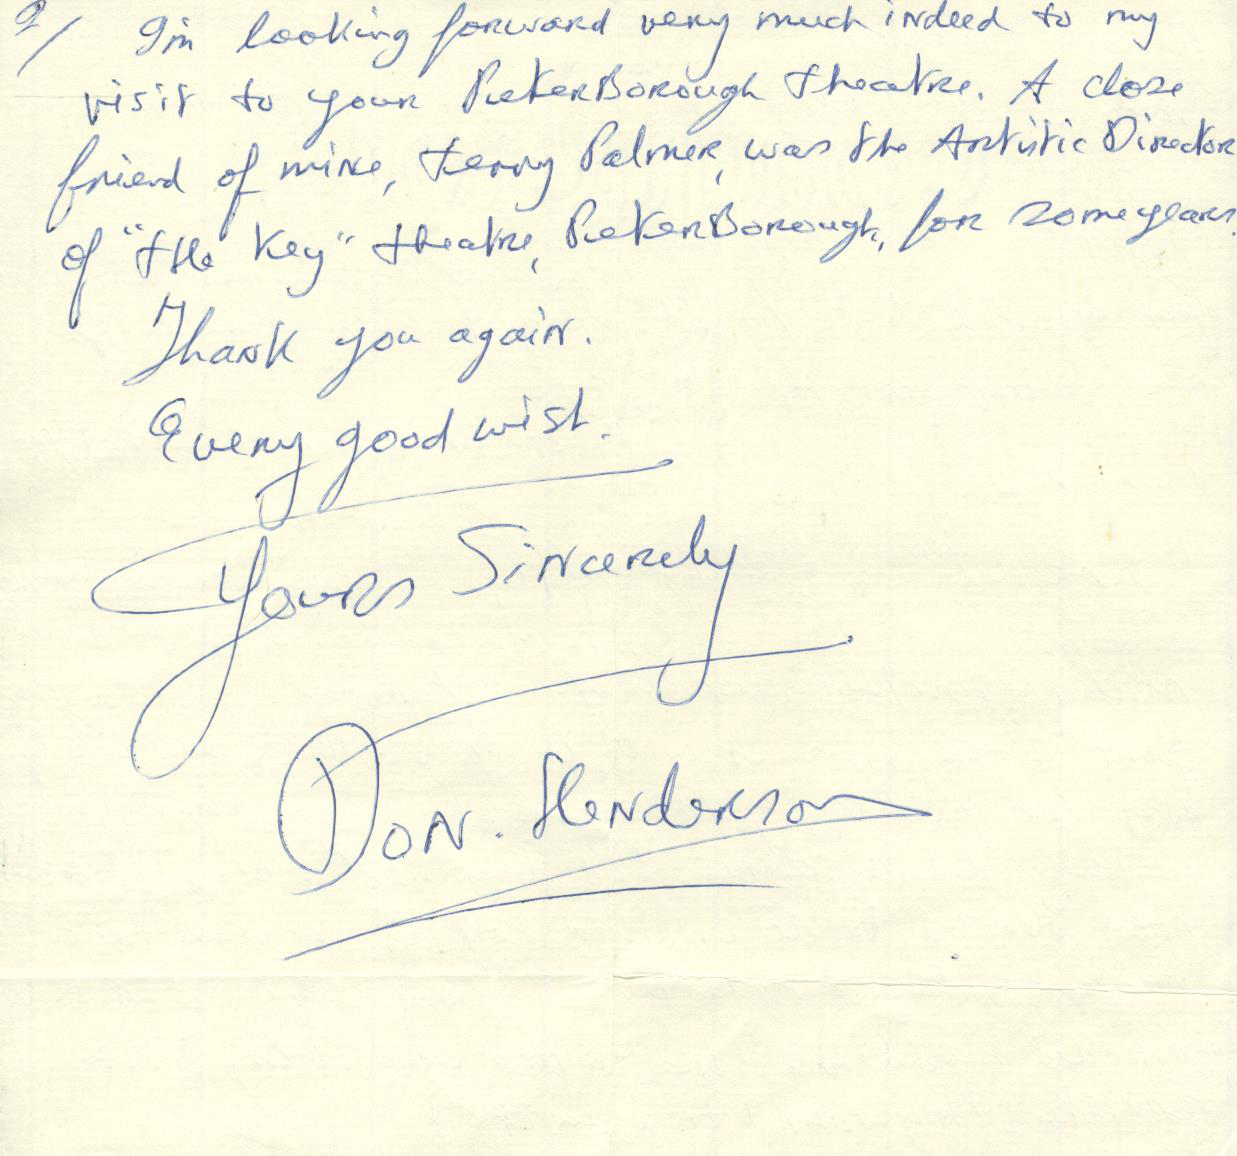 2/ I'm looking forward very much indeed to my
visit to your PeterBorough theatre. A close
friend of mine, Terry Palmer, was the Artistic Director
of "The Key" theatre, PeterBorough, for some years.
Thank you again.
Every good wish.
Yours Sincerely
Don. Henderson